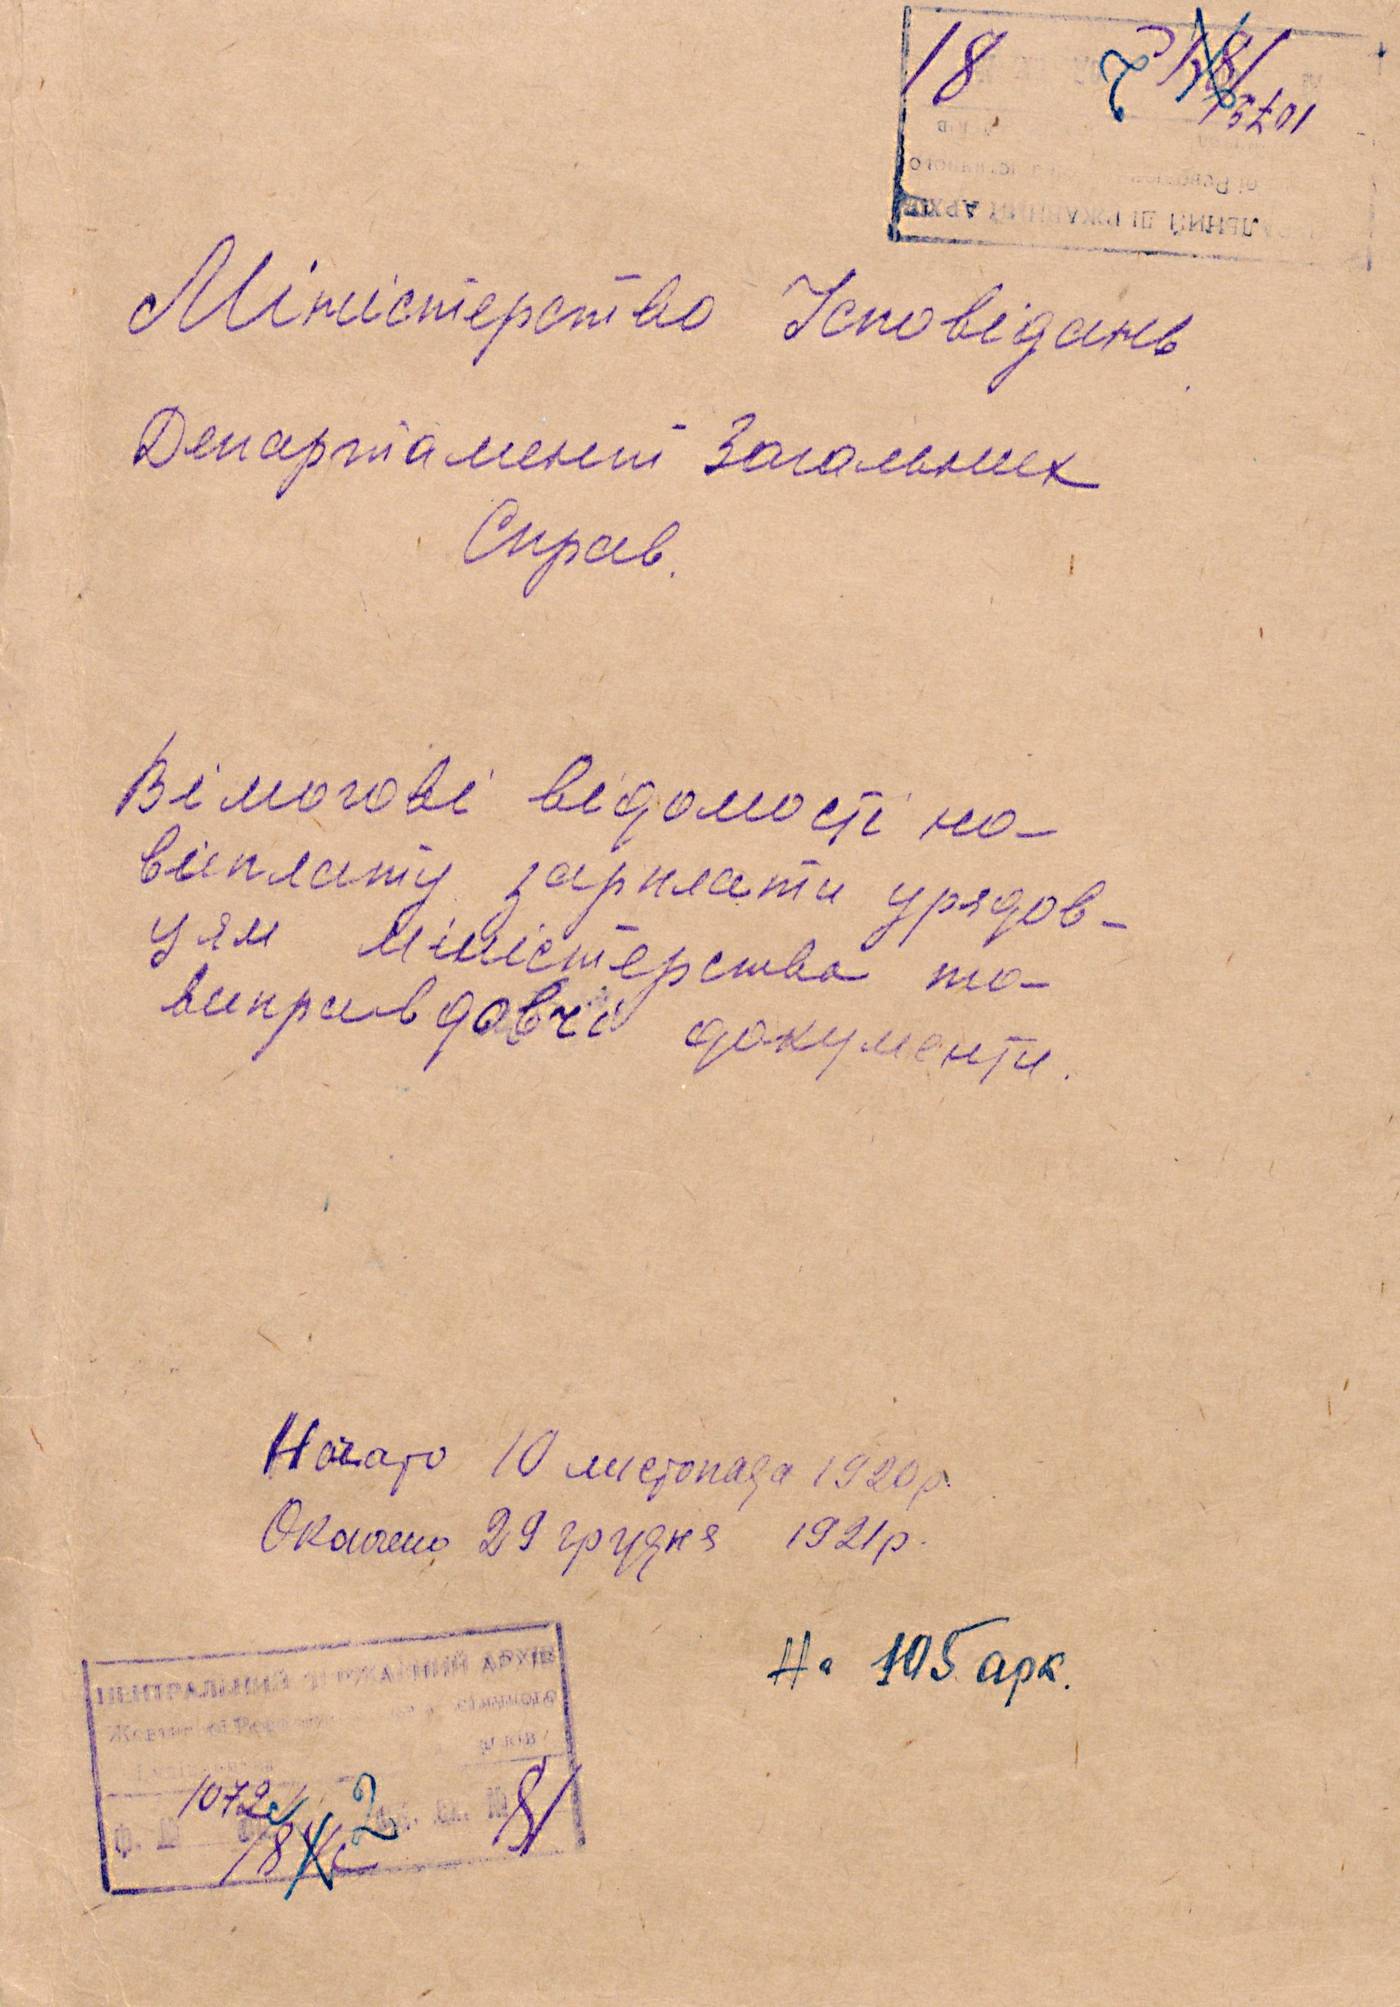 18
2
1072
Міністерство Ісповідань
Департамент Загальних
Справ.
Вімогові відомості на-
виплату зарплати урядов-
цям міністерства та-
виправдовчі документи.
Начато 10 листопада 1920р.
Окончено 29 грудня 1921р.
На 105 арк.
ЦЕНТРАЛЬНИЙ ДЕРЖАВНИЙ АРХІВ
1072
2
ф. №
од. зб. №